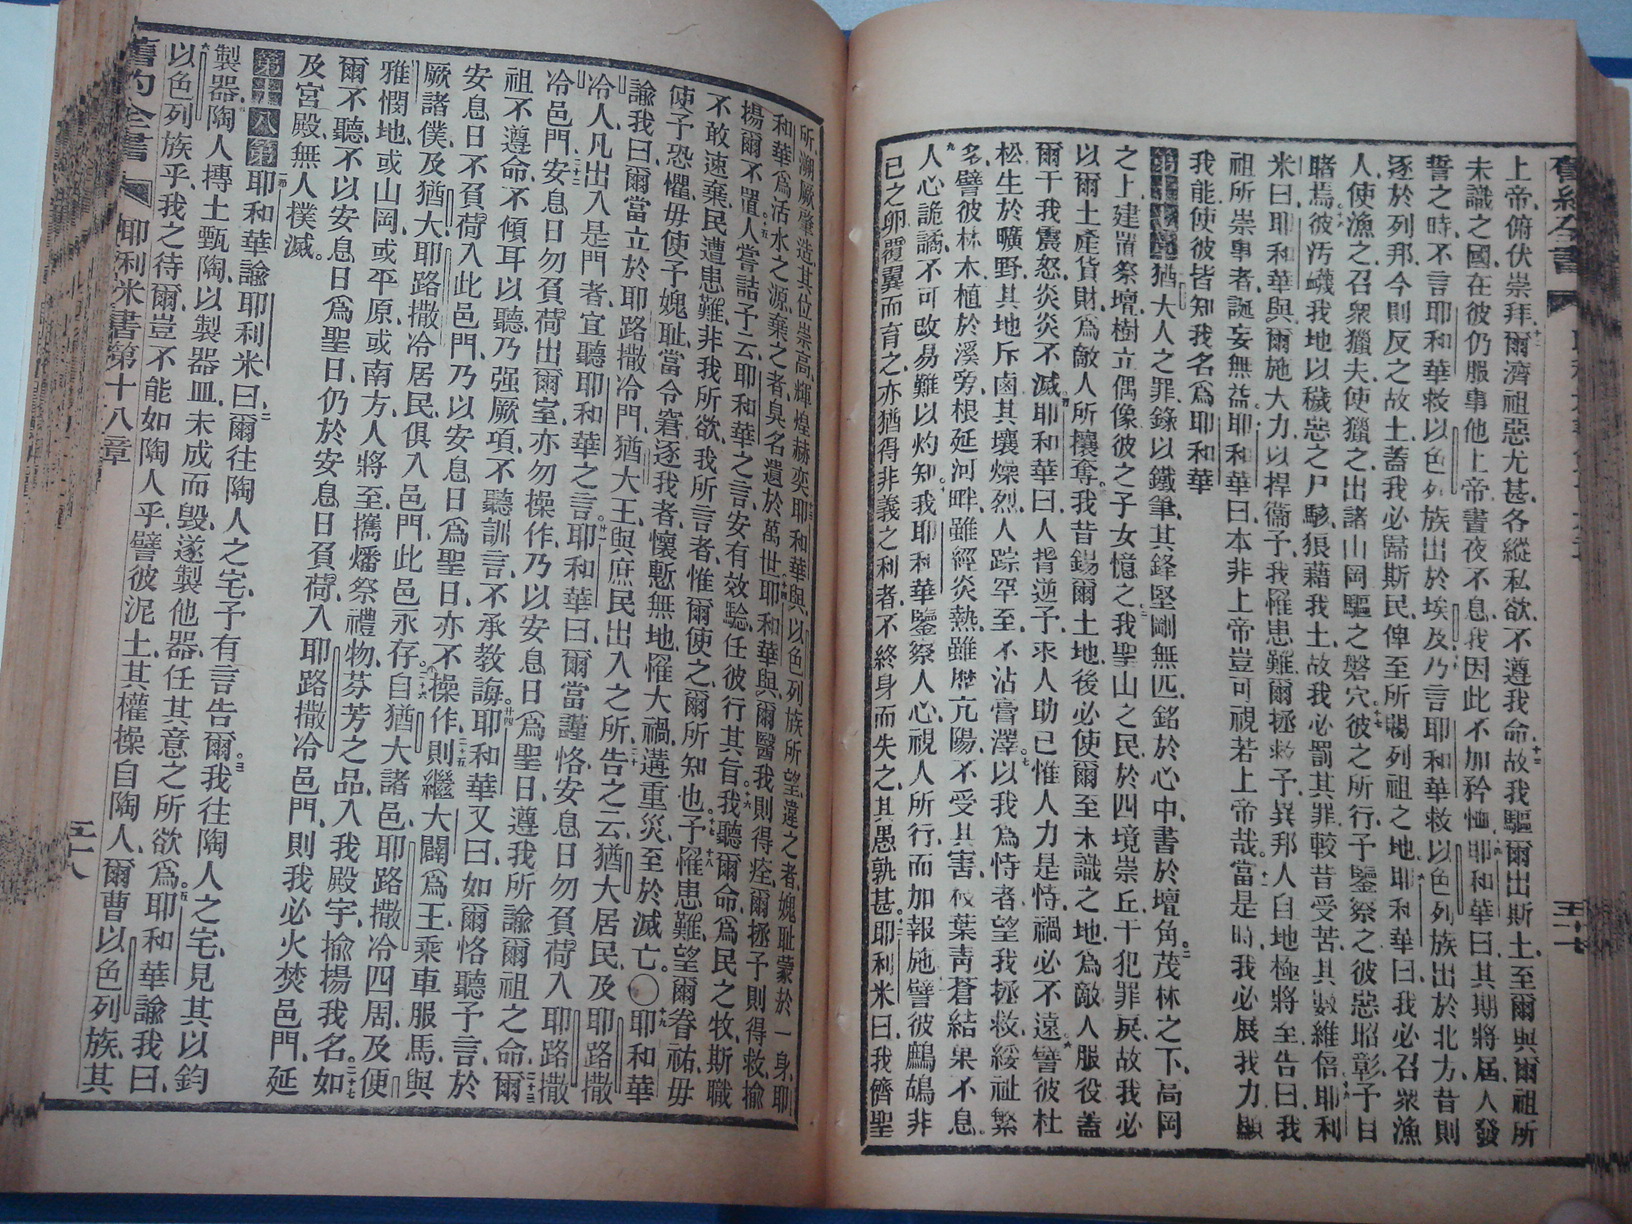 上帝俯伏崇拜爾濟祖惡尤甚各縱私欲不遵我命故我驅爾出斯土至爾與爾祖所
未識之國在彼仍服事他上帝晝夜不息我因此不加矜恤耶和華曰其期將屆人發
誓之時不言耶和華救以色列族出於埃及乃言耶和華救以色列族出於北方昔則
逐於列邦今則反之故土蓋我必歸斯民俾至所賜列祖之地耶和華曰我必召眾漁
人使漁之召眾獵夫使獵之出諸山岡驅之磐穴彼之所行予鑒察之彼惡昭彰予目
睹焉彼汚衊我地以穢惡之尸駭狼藉我土故我必罰其罪較昔受苦其數維倍耶利
米曰耶和華與爾施大力以捍衞予我罹患難爾拯救予異邦人自地極將至告曰我
祖所崇事者誕妄無益耶和華曰本非上帝豈可視若上帝哉當是時我必展我力顯
我能使彼皆知我名爲耶和華
第十七章猶大人之罪錄以鐵筆其鋒堅剛無匹銘於心中書於壇角茂林之下高岡
之上建置祭壇樹立偶像彼之子女憶之我聖山之民於四境崇丘干犯罪戾故我必
以爾土產貨財爲敵人所攘奪我昔錫爾土地後必使爾至未識之地爲敵人服役蓋
爾干我震怒炎炎不滅耶和華曰人背逆予求人助己惟人力是恃禍必不遠譬彼杜
松生於曠野其地斥鹵其壤燥烈人踪罕至不沾膏澤以我爲恃者望我拯救綏祉繁
多譬彼林木植於溪旁根延河畔雖經炎熱雖歷亢陽不受其害枝葉青蒼結果不息
人心詭譎不可改易難以灼知我耶和華鑒察人心視人所行而加報施譬彼鷓鴣非
己之卵覆翼而育之亦猶得非義之利者不終身而失之其愚孰甚耶利米曰我儕聖
所溯厥肇造其位崇高輝煌赫奕耶和華與以色列族所望違之者媿耻蒙於一身耶
和華爲活水之源棄之者臭名遺於萬世耶和華與爾醫我則得痊爾拯予則得救揄
揚爾不置人嘗詰予云耶和華之言安有效驗任彼行其旨我聽爾命爲民之牧斯職
不敢速棄民遭患難非我所欲我所言者惟爾使之爾所知也予罹患難望爾眷祐毋
使予恐懼毋使予媿耻當令窘逐我者懷慙無地罹大禍遘重災至於滅亡〇耶和華
諭我曰爾當立於耶路撒冷門猶大王與庶民出入之所告之云猶大居民及耶路撒
冷人凡出入是門者宜聽耶和華之言耶和華曰爾當謹恪安息日勿負荷入耶路撒
冷邑門安息日勿負荷出爾室亦勿操作乃以安息日爲聖日遵我所諭爾祖之命爾
祖不遵命不傾耳以聽乃强厥項不聽訓言不承教誨耶和華又曰如爾恪聽予言於
安息日不負荷入此邑門乃以安息日爲聖日亦不操作則繼大闢爲王乘車服馬與
厥諸僕及猶大耶路撒冷居民俱入邑門此邑永存自猶大諸邑耶路撒冷四周及便
雅憫地或山岡或平原或南方人將至攜燔祭禮物芬芳之品入我殿宇揄揚我名如
爾不聽不以安息日爲聖日仍於安息日負荷入耶路撒冷邑門則我必火焚邑門延
及宮殿無人撲滅。
第十八章耶和華諭耶利米曰爾往陶人之宅予有言告爾我往陶人之宅見其以鈞
製器陶人摶土甄陶以製器皿未成而毁遂製他器任其意之所欲爲耶和華諭我曰
以色列族乎我之待爾豈不能如陶人乎譬彼泥土其權操自陶人爾曹以色列族其
舊約全書 耶利米書第十八章 五十八